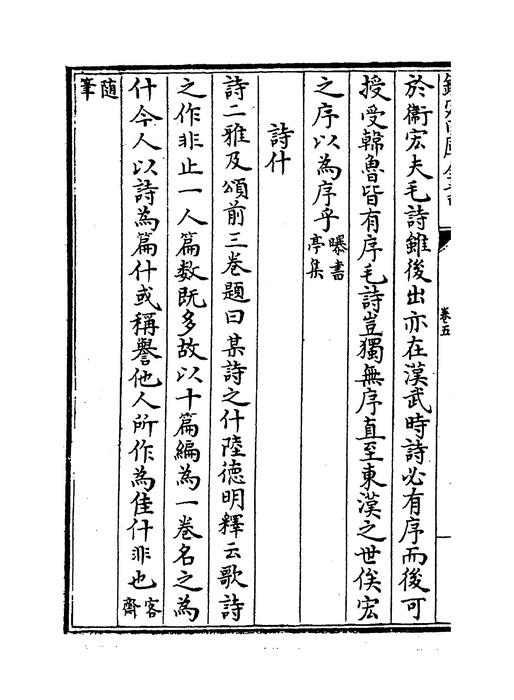 於衞宏夫毛詩雖後出亦在漢武時詩必有序而後可
授受韓魯皆有序毛詩豈獨無序直至東漢之世俟宏
之序以為序乎曝書亭集
詩什
詩二雅及頌前三巻題曰某詩之什陸德明釋云歌詩
之作非止一人篇數既多故以十篇編為一巻名之為
什今人以詩為篇什或稱譽他人所作為佳什非也容齋
随筆
巻五